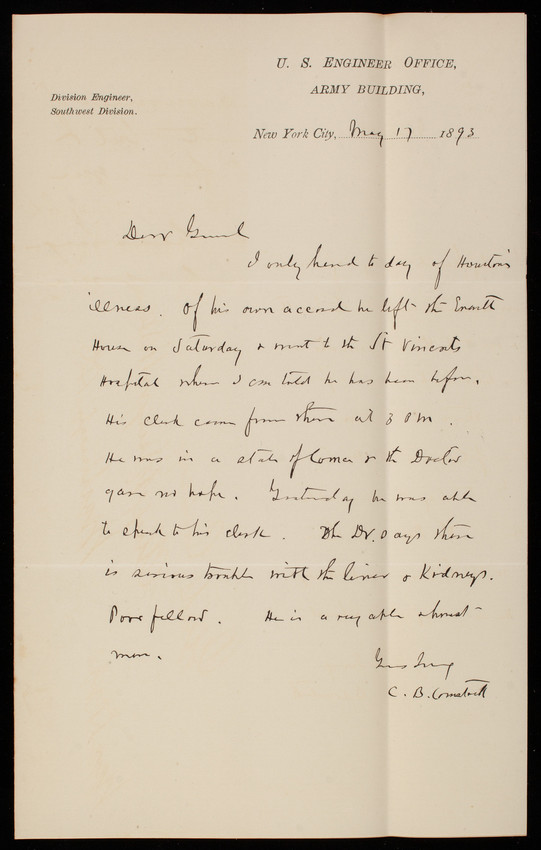 U. S. Engineer Office,
ARMY BUILDING,
Division Engineer,
Southwest Division.
New York City, May 17 1893
Dear General
I only heard to day of Houston's
illness. Of his own accord he left the Everett
House on Saturday & went to the St Vincents
Hospital where I am told he has been before.
His clerk came from there at 3 P M.
He was in a state of Coma & the Doctor
gave no hope. Yesterday he was able
to speak to his clerk. The Dr. says there
is serious trouble with the liver & Kidneys.
Poor fellow. He is a very able & honest
man.
Yours truly
C. B. Comstock